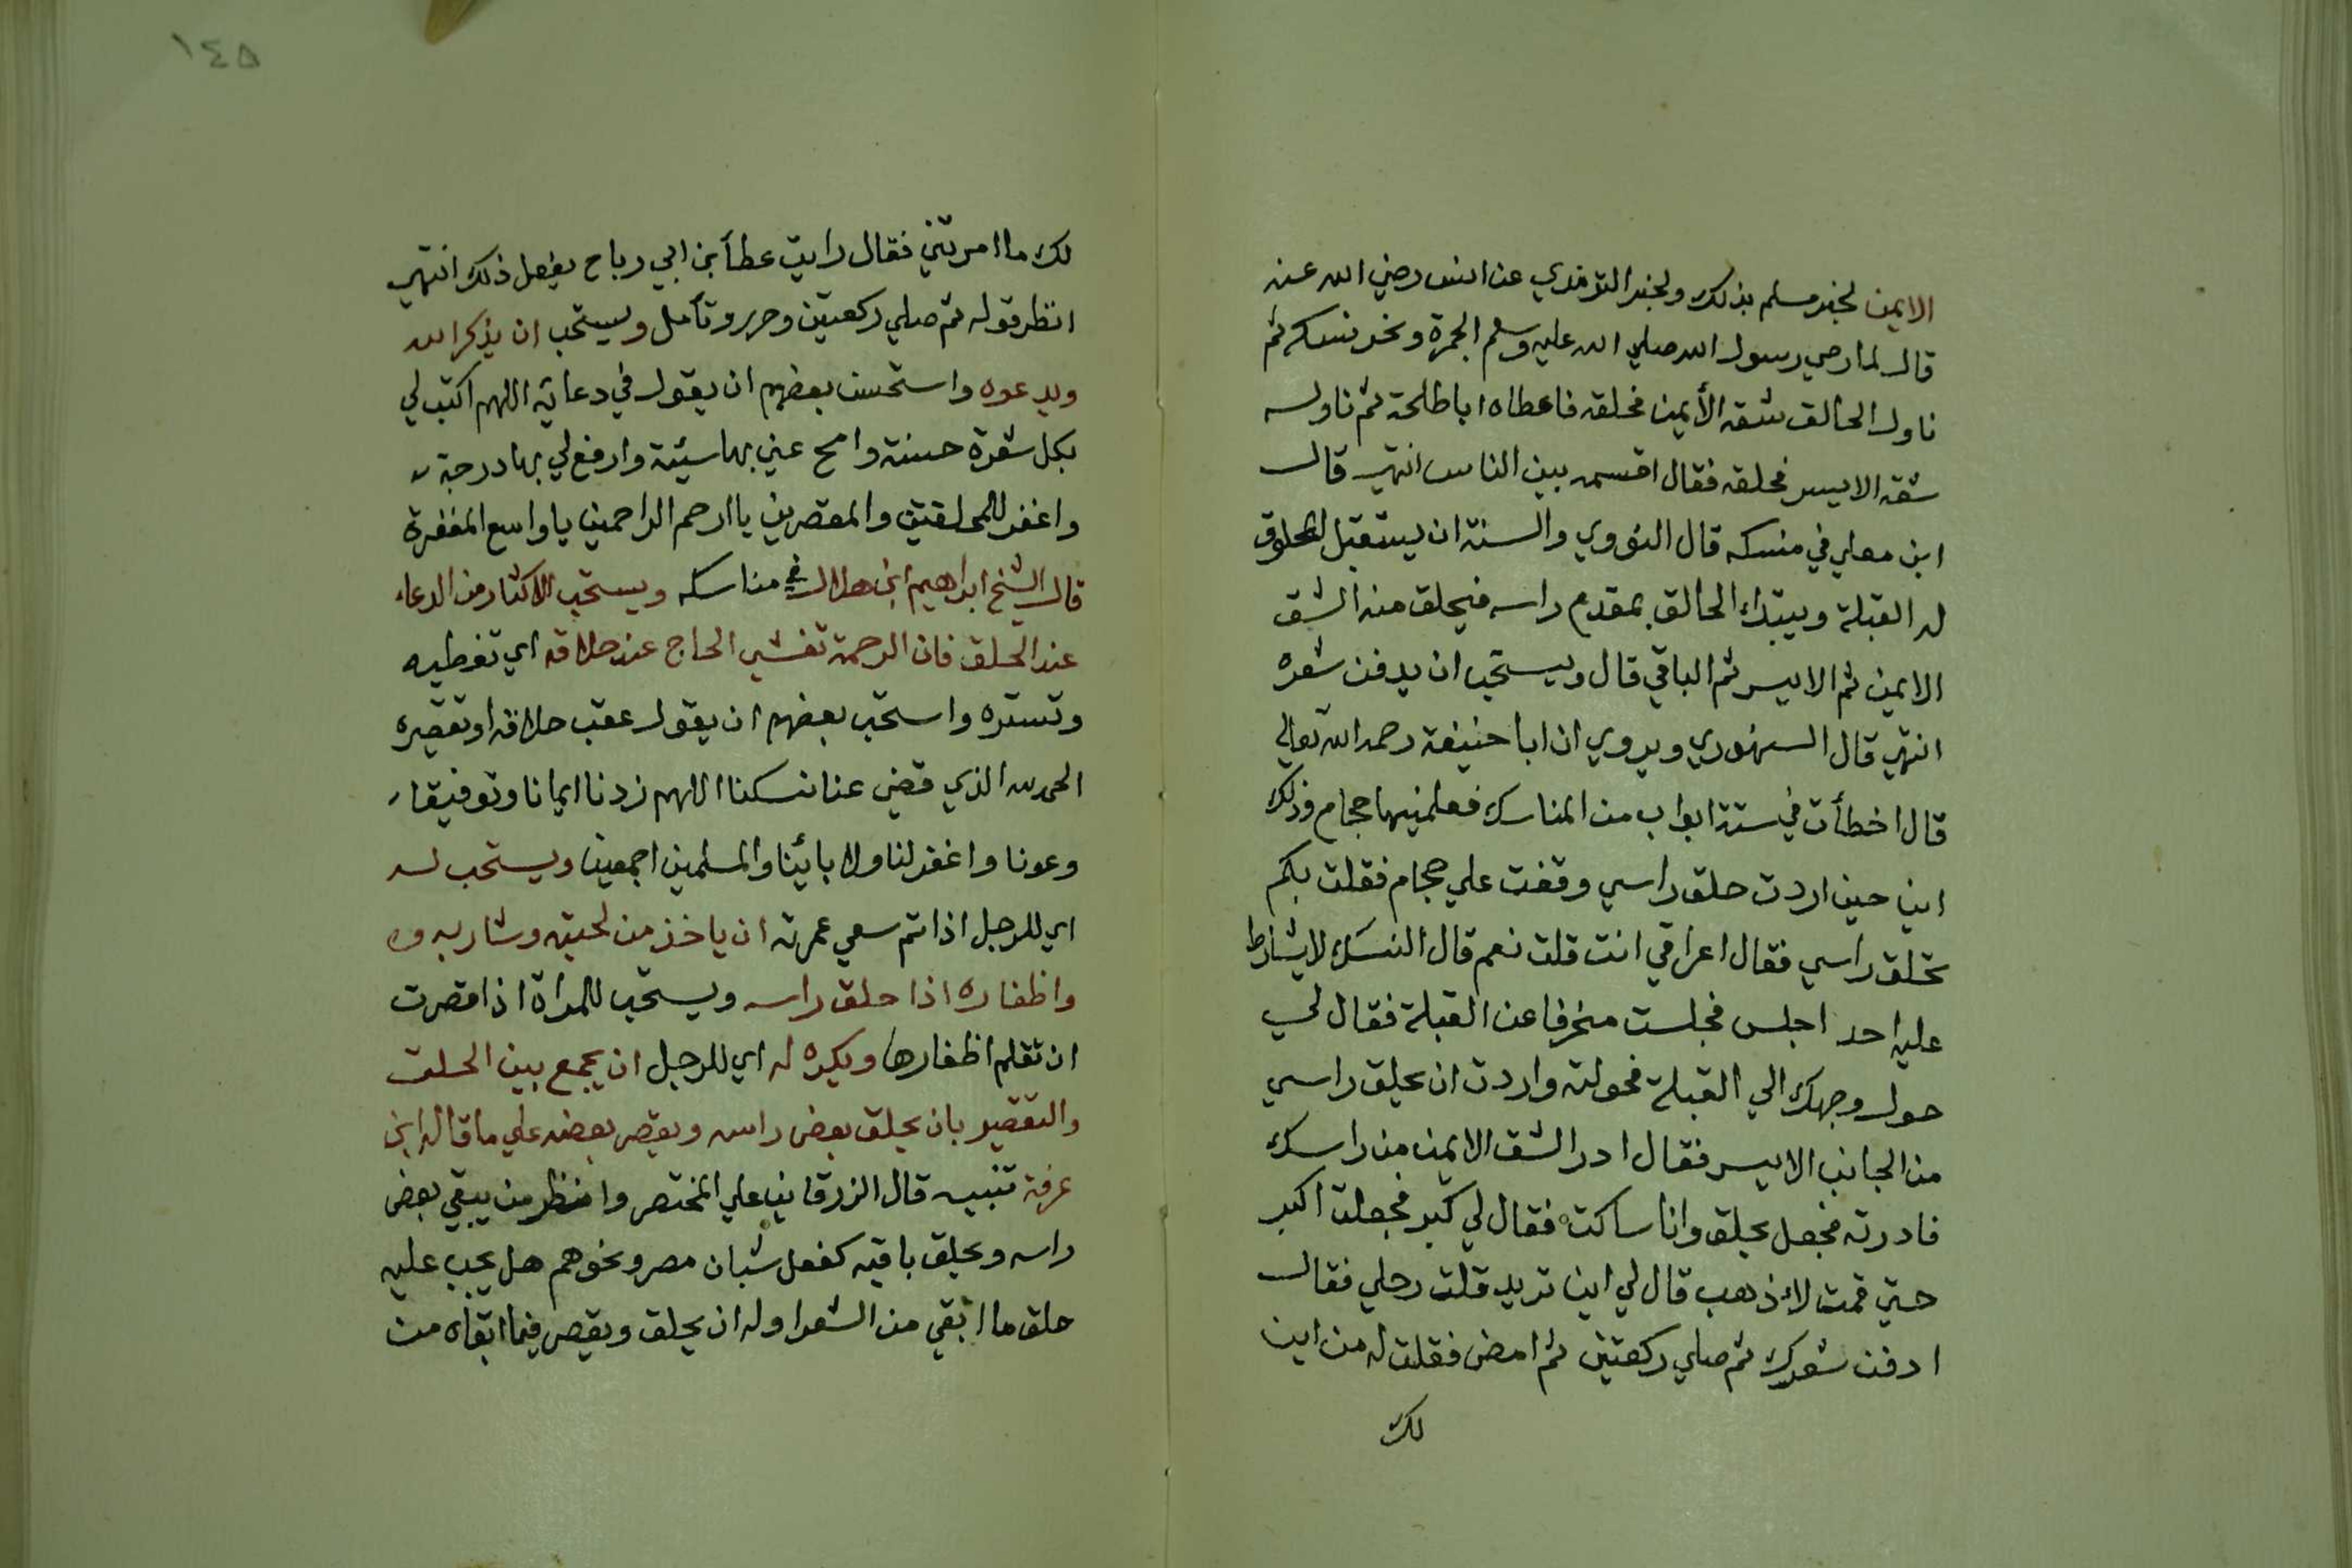 الايمن لخبر مسلم بذلك ولخبر الترمذي عن انس رضي الله عنه
قال لما رمي رسول الله صلي الله عليه وسلم الجمرة ونحر نسكه ثم
ناول الحالق شقه الأيمن فحلقه فاعطاه اباطلحة ثم ناوله
شقه الايسر فحلقه فقال اقسمه بين الناس انتهي قال
ابن معلي في منسكه قال النووي والسنة ان يستقبل المحلوق
له القبلة ويبتداء الحالق بمقدم راسه فيحلق منه الشق
الايمن ثم الايسر ثم الباقي قال ويستحب ان يدفن شعره
انتهي قال السنهوري ويروي ان ابا حنيفة رحمه الله تعالي
قال اخطأت في ستة ابواب من المناسك فعلمنيها حجام وذلك
اني حين اردت حلق راسي وقفت علي حجام فقلت بكم
تحلق راسي فقال اعراقي انت قلت نعم قال النسك لا يشارط
عليه احد اجلس فجلست منحرفا عن القبلة فقال لي
حول وجهك الي القبلة فحولته واردت ان يحلق راسي
من الجانب الايسر فقال ادر الشق الايمن من راسك
فادرته فجعل يحلق وانا ساكت فقال لي كبر فجعلت اكبر
حتي قمت لاذهب قال لي اين تريد قلت رحلي فقال
ادفن شعرك ثم صلي ركعتين ثم امض فقلت له من اين
لك
١٤٥
لك ما امرتني فقال رايت عطأ بن ابي رباح يفعل ذلك انتهي
انظر قوله ثم صلي ركعتين وحرر وتأمل ويستحب ان يذكر الله
ويدعوه واستحسن بعضهم ان يقول في دعايه اللهم اكتب لي
بكل شعرة حسنة وامح عني بها سيئة وارفع لي بها درجة
واغفر للمحلقين والمقصرين يا ارحم الراحمين يا واسع المغفرة
قال الشيخ ابراهيم ابن هلال في مناسكه ويستحب الاكثار من الدعاء
عند الحلق فان الرحمة تغشي الحاج عند حلاقه اي تغطيه
وتستره واستحب بعضهم ان يقول عقب حلاقه او تقصيره
الحمد لله الذي قضي عنا نسكنا اللهم زدنا ايمانا وتوفيقا
وعونا واغفر لنا ولابائنا والمسلمين اجمعين ويستحب له
اي للرجل اذا تم سعي عمرته ان ياخذ من لحيته وشاربه و
واظفاره اذا حلق راسه ويستحب للمراة اذا قصرت
ان تقلم اظفارها ويكره له اي للرجل ان يجمع بين الحلق
والتقصير بان يحلق بعض راسه ويقصر بعضه علي ما قاله ابن
عرفة تنبيه قال الزرقاني علي المختصر وانظر من يبقي بعض
راسه ويحلق باقيه كفعل شبان مصر ونحوهم هل يجب عليه
حلق ما ابقي من الشعر اوله ان يحلق ويقصر فيما ابقاه من